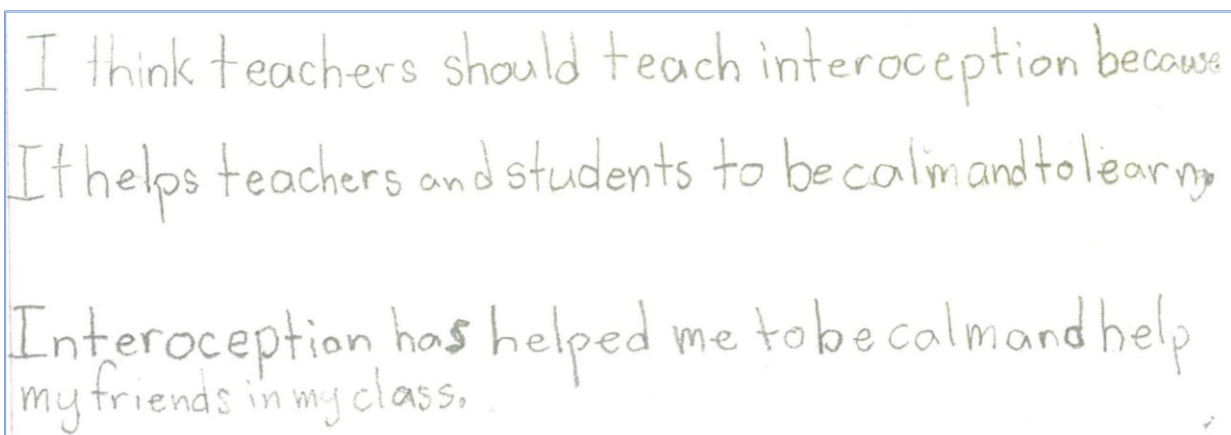 I think teachers should teach interoception because
It helps teachers and students to be calm and to learn.
Interoception has helped me to be calm and help
my friends in my class.